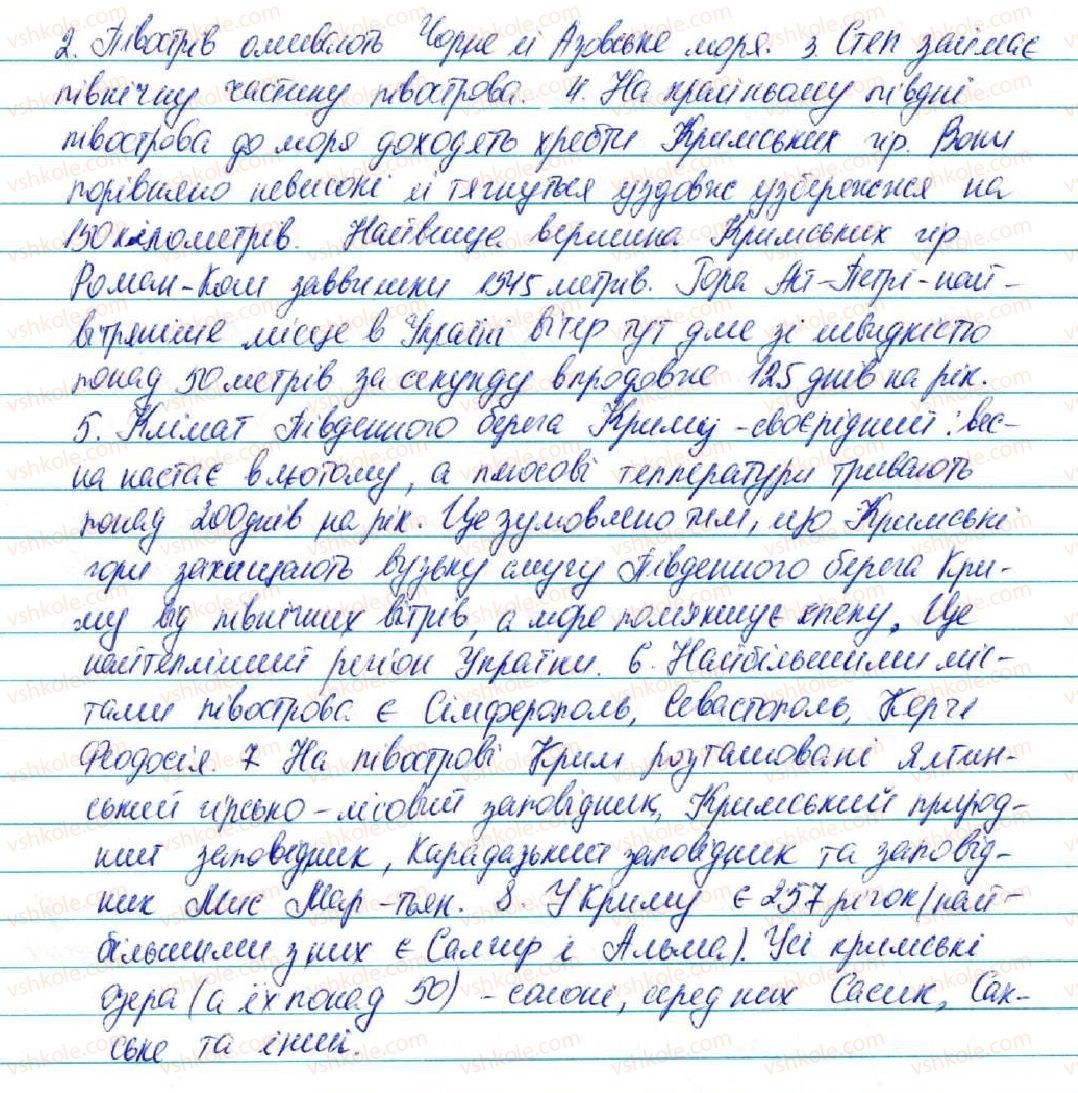 2. Півострів омивають Чорне й Азовське моря. 3. Степ займає
північну частину півострова. 4. На крайньому півдні
півострова до моря доходять хребти Кримських гір. Вони
порівняно невисокі й тягнуться уздовж узбережжя на
150 кілометрів. Найвища вершина Кримських гір
Роман-Кош заввишки 1545 метрів. Гора Ай-Петрі - най-
вітряніше місце в Україні вітер тут дме зі швидкістю
понад 50 метрів за секунду впродовж 125 днів на рік.
5. Клімат Південного берега Криму - своєрідний: вес-
на настає в лютому, а плюсові температури тривають
понад 200 днів на рік. Це зумовлено тим, що Кримські
гори захищають вузьку смугу Південного берега Кри-
му від північних вітрів, а море пом'якшує спеку. Це
найтепліший регіон України. 6. Найбільшими міс-
тами півострова є Сімферополь, Севастополь, Керч і
Феодосія. 7 На півострові Крим розташовані Ялтин-
ський гірсько-лісовий заповідник, Кримський природ-
ний заповідник, Карадазький заповідник та заповід-
ник Мис Мар-тьян. 8. У Криму є 257 річок (най-
більшими з них є Салгир і Альма). Усі кримські
озера (а їх понад 50) - солоні, серед них Сасик, Сак-
ське та інші.
vshkole.com